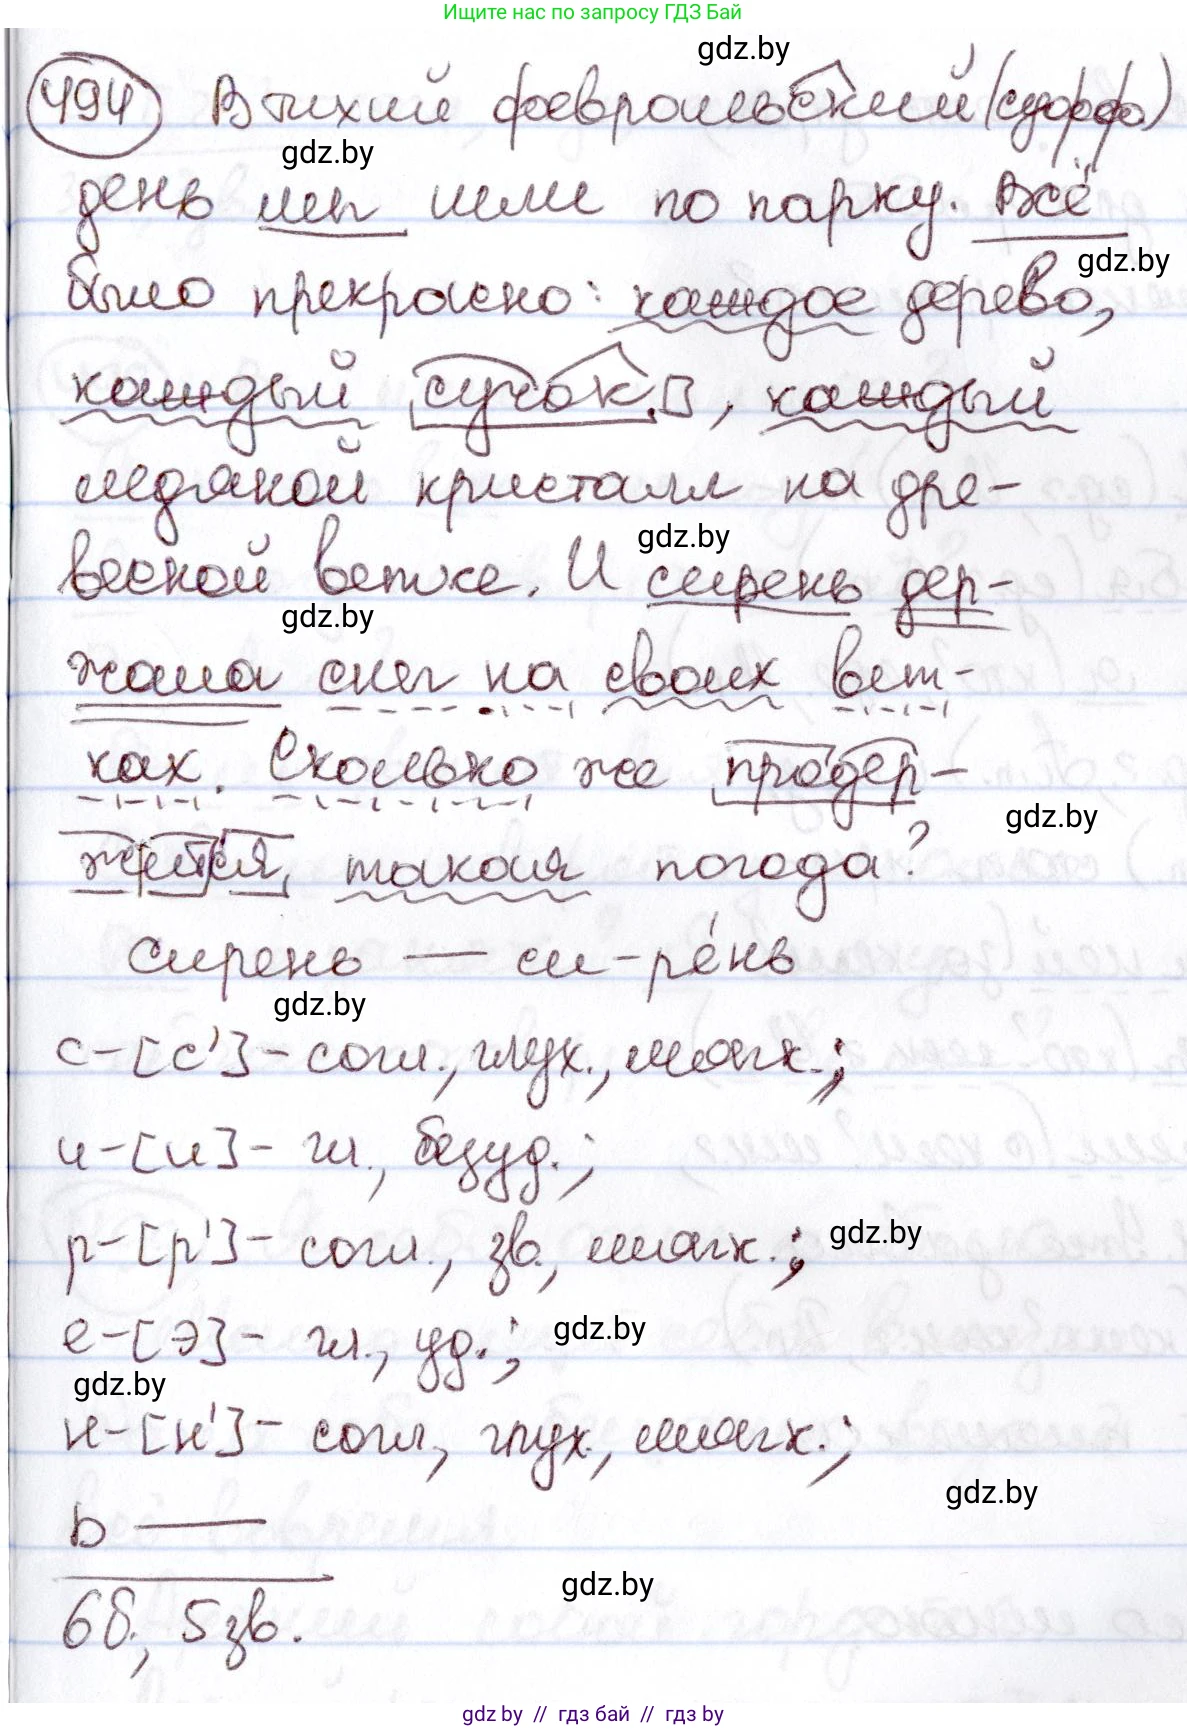 Ищите нас по запросу ГДЗ Бай
gdz.by
494 В тихий февральский (суфф.)
gdz.by
день мы шли по парку. Всё
gdz.by
было прекрасно: каждое дерево,
каждый сучок, каждый
ледяной кристалл на дре-
gdz.by
весной ветке. И сирень дер-
gdz.by
жала снег на своих вет-
ках. Сколько же продер-
gdz.by
жится такая погода?
сирень — си-ре́нь
gdz.by
с-[с']-согл., глух., мягк.;
и-[и]- гл., безуд.;
р-[р']- согл., зв., мягк.;
gdz.by
е-[э]- гл., уд.;
gdz.by
gdz.by
н-[н']- согл., глух., мягк.;
gdz.by
ь —
gdz.by
6б., 5зв.
gdz by // гдз бай // gdz by